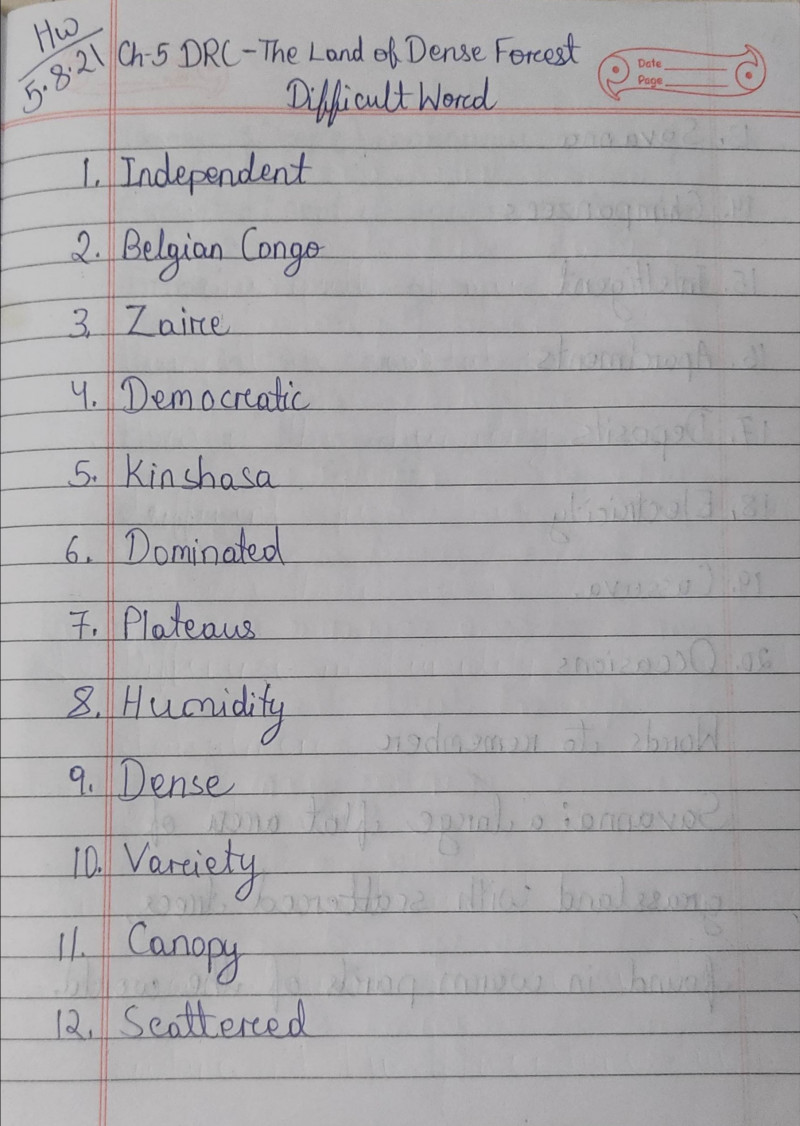 HW
5.8.21
Ch-5 DRC - The Land of Dense Forest
Date
Page
Difficult Word
1. Independent
2. Belgian Congo
3. Zaire
4. Democratic
5. Kinshasa
6. Dominated
7. Plateaus
8. Humidity
9. Dense
10. Variety
11. Canopy
12. Scattered